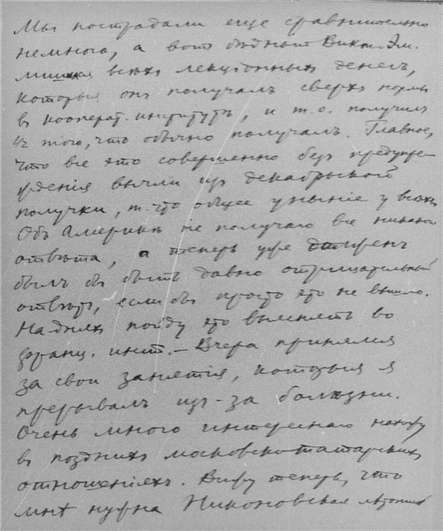 Мы пострадали еще сравнительно
немного, а вот бедный Викт. Эм.
лишился всѣхъ лекціонныхъ денегъ,
которыя онъ получалъ сверхъ нормы
въ кооперат. институтѣ, и т. о. получилъ
½ того, что обычно получалъ. Главное,
что все это совершенно безъ предупре-
жденія вычли изъ декабрьской
получки, т. что общее уныніе у всѣхъ.
Объ Америкѣ не получаю все никакого
отвѣта, а теперь уже
былъ бы быть давно отрицательный
отвѣтъ, если бы просто это не вышло.
На дняхъ пойду это выяснять во
франц. инст. – Вчера принялся
за свои занятія, которыя я
прерывалъ из-за болѣзни.
Очень много интереснаго нахожу
въ позднихъ московско-татарскихъ
отношеніяхъ. Вижу теперь, что
мнѣ нужна Никоновская лѣтопись